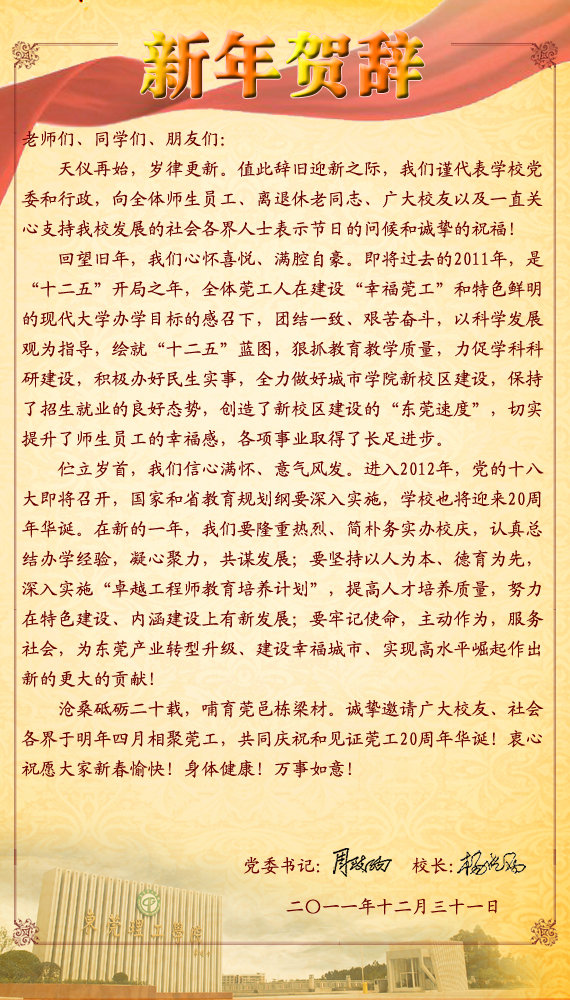 新年贺辞
老师们、同学们、朋友们：
天仪再始，岁律更新。值此辞旧迎新之际，我们谨代表学校党
委和行政，向全体师生员工、离退休老同志、广大校友以及一直关
心支持我校发展的社会各界人士表示节日的问候和诚挚的祝福！
回望旧年，我们心怀喜悦、满腔自豪。即将过去的2011年，是
“十二五”开局之年，全体莞工人在建设“幸福莞工”和特色鲜明
的现代大学办学目标的感召下，团结一致、艰苦奋斗，以科学发展
观为指导，绘就“十二五”蓝图，狠抓教育教学质量，力促学科科
研建设，积极办好民生实事，全力做好城市学院新校区建设，保持
了招生就业的良好态势，创造了新校区建设的“东莞速度”，切实
提升了师生员工的幸福感，各项事业取得了长足进步。
伫立岁首，我们信心满怀、意气风发。进入2012年，党的十八
大即将召开，国家和省教育规划纲要深入实施，学校也将迎来20周
年华诞。在新的一年，我们要隆重热烈、简朴务实办校庆，认真总
结办学经验，凝心聚力，共谋发展；要坚持以人为本、德育为先，
深入实施“卓越工程师教育培养计划”，提高人才培养质量，努力
在特色建设、内涵建设上有新发展；要牢记使命，主动作为，服务
社会，为东莞产业转型升级、建设幸福城市、实现高水平崛起作出
新的更大的贡献！
沧桑砥砺二十载，哺育莞邑栋梁材。诚挚邀请广大校友、社会
各界于明年四月相聚莞工，共同庆祝和见证莞工20周年华诞！衷心
祝愿大家新春愉快！身体健康！万事如意！
党委书记： 校长：
二〇一一年十二月三十一日
東莞理工學院